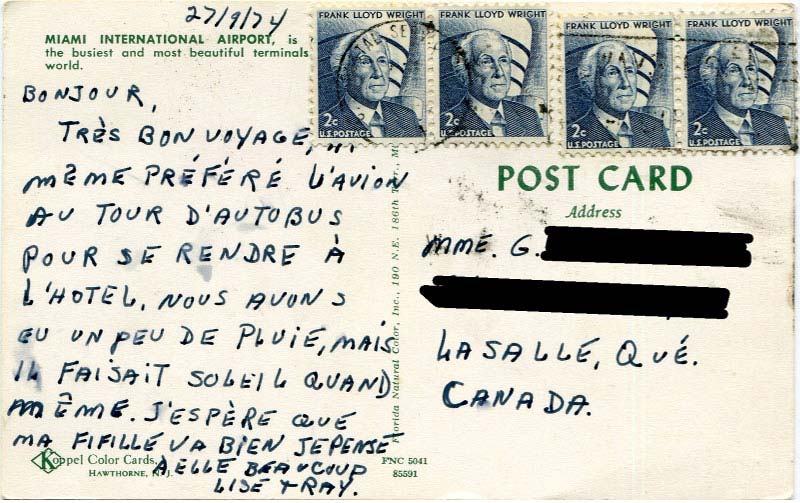 27/9/74
MIAMI INTERNATIONAL AIRPORT, is
the busiest and most beautiful terminals
world.
BONJOUR,
TRÈS BON VOYAGE,
MÊME PRÉFÉRÉ L'AVION
AU TOUR D'AUTOBUS
POUR SE RENDRE À
L'HOTEL. NOUS AVONS
EU UN PEU DE PLUIE, MAIS
IL FAISAIT SOLEIL QUAND
MÊME. J'ESPÈRE QUE
MA FIFILLE VA BIEN JE PENSE
À ELLE BEAUCOUP
LISE & RAY.
Koppel Color Cards
HAWTHORNE, N.J.
FNC 5041
85591
Florida Natural Color, Inc., 190 N.E. 186th Ter.,
FRANK LLOYD WRIGHT
2c
U.S. POSTAGE
FRANK LLOYD WRIGHT
2c
U.S. POSTAGE
FRANK LLOYD WRIGHT
2c
U.S. POSTAGE
FRANK LLOYD WRIGHT
2c
U.S. POSTAGE
POST CARD
Address
MME. G.
LASALLE, QUÉ.
CANADA.